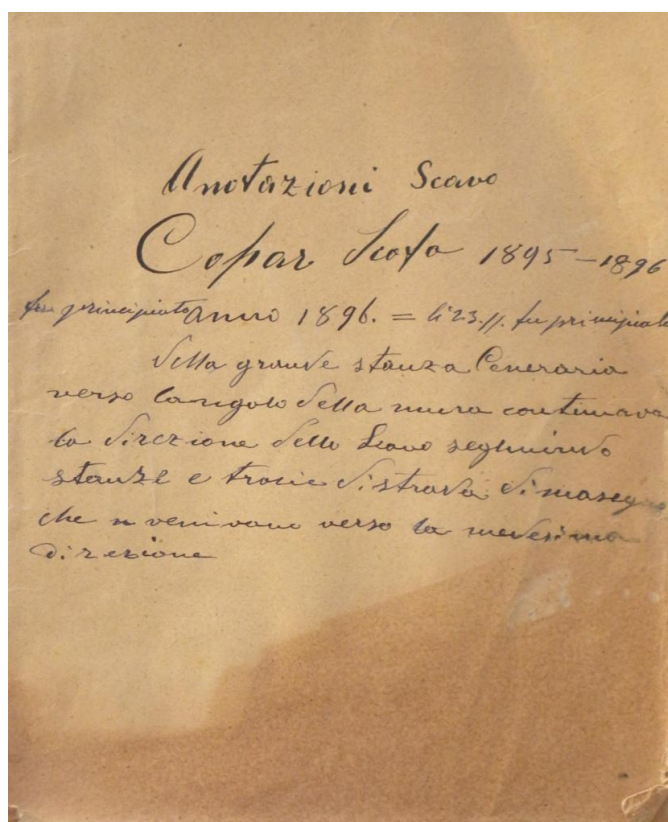 Anotazioni Scavo
Copar Scofa 1895-1896
fu principiato anno 1896. = li 23.//. fu principiato
della grande stanza Ceneraria
verso langolo della mura continuava
la direzione dello Scavo seghuindo
stanze e troni di strada di masegne
che venivano verso la medesima
direzione